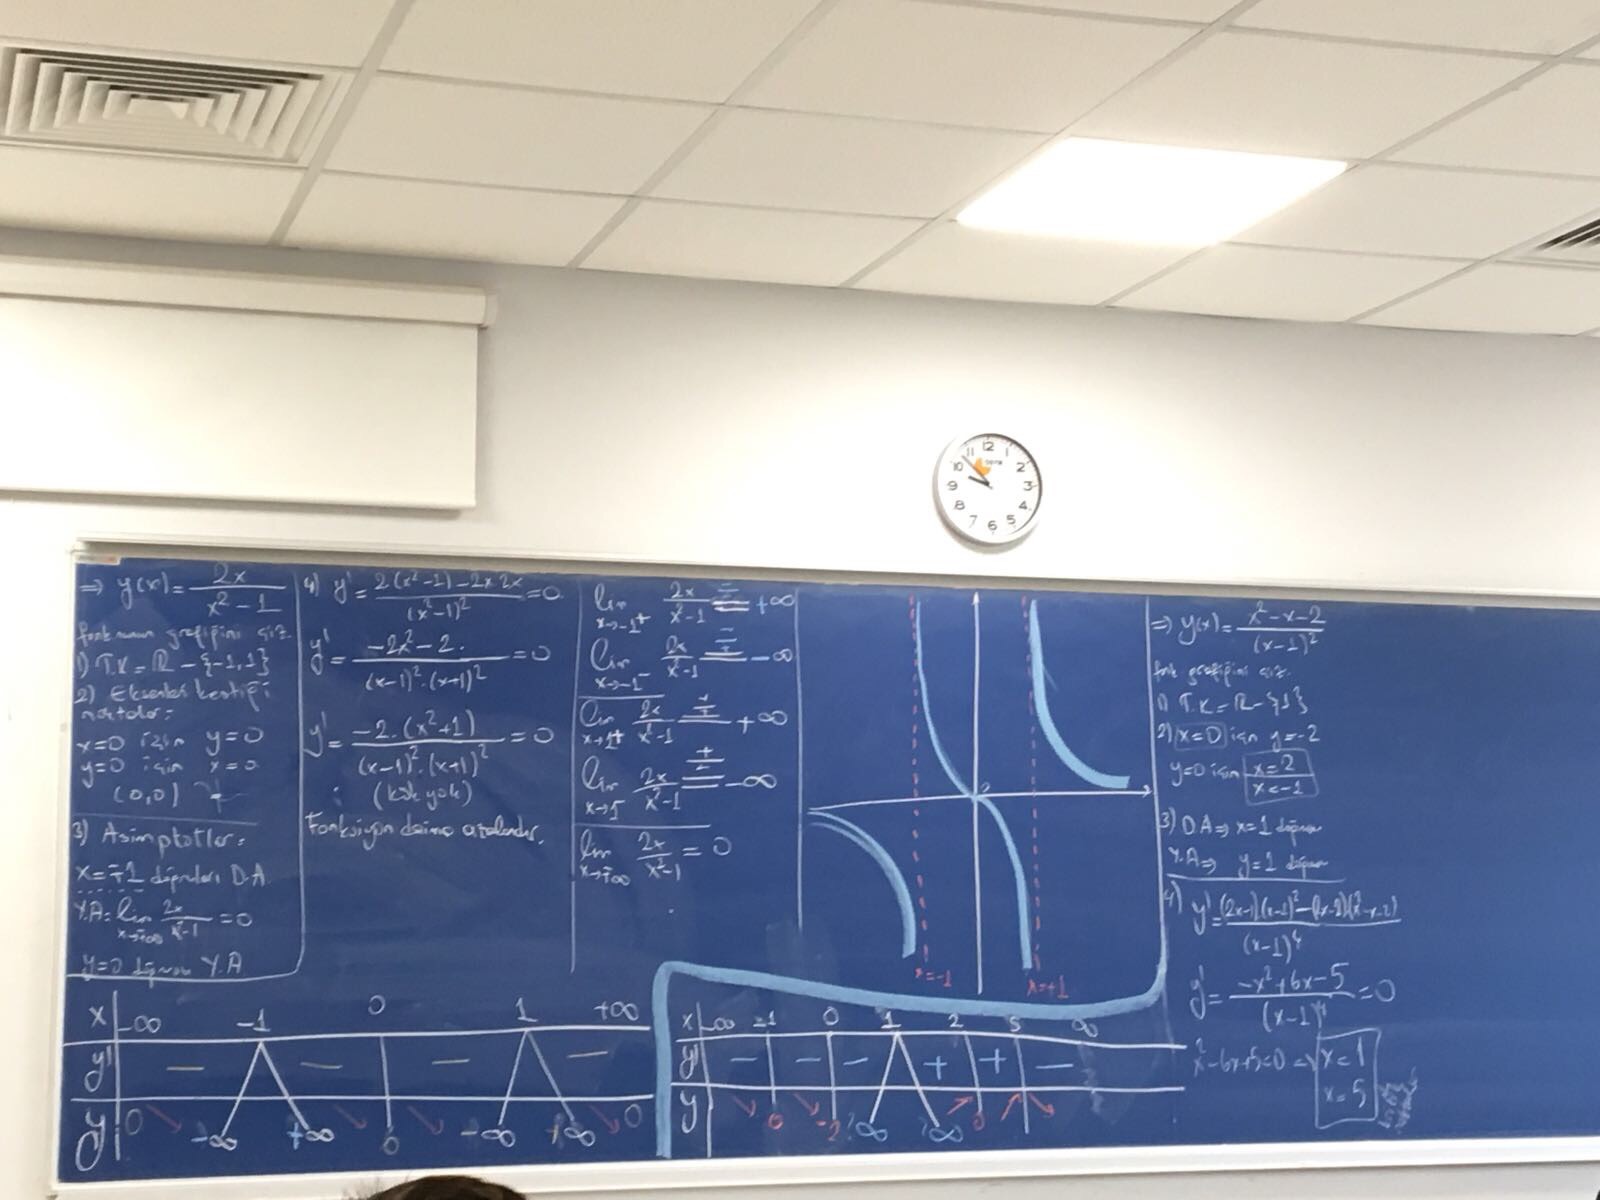 ⇒ y(x) = 2x / (x² - 1)
fonksiyonunun grafiğini çiz.
1) T.K = ℝ - {-1, 1}
2) Eksenleri kestiği
noktalar:
x=0 için y=0
y=0 için x=0
(0,0)
3) Asimptotlar:
x=∓1 doğruları D.A.
Y.A = lim x→∓∞ 2x / (x²-1) = 0
y=0 doğrusu Y.A
4) y' = (2(x²-1) - 2x.2x) / (x²-1)² = 0
y' = (-2x² - 2) / ((x-1)².(x+1)²) = 0
y' = -2.(x²+1) / ((x-1)².(x+1)²) = 0
(kök yok)
Fonksiyon daima azalandır.
lim x→-1⁺ 2x / (x²-1) = -/- = +∞
lim x→-1⁻ 2x / (x²-1) = -/+ = -∞
lim x→1⁺ 2x / (x²-1) = +/+ = +∞
lim x→1⁻ 2x / (x²-1) = +/- = -∞
lim x→∓∞ 2x / (x²-1) = 0
x=-1
x=+1
x -∞ -1 0 1 +∞
y' - - - -
y 0 -∞ +∞ 0 -∞ +∞ 0
⇒ y(x) = (x² - x - 2) / (x-1)²
fonk grafiğini çiz.
1) T.K = ℝ - {1}
2) x=0 için y=-2
y=0 için x=2
x=-1
3) D.A ⇒ x=1 doğrusu
Y.A ⇒ y=1 doğrusu
4) y' = ((2x-1)(x-1)² - (2x-2)(x²-x-2)) / (x-1)⁴
y' = (-x² + 6x - 5) / (x-1)⁴ = 0
x² - 6x + 5 = 0 ⇒ x=1
x=5
x -∞ -1 0 1 2 5 ∞
y' - - - + + -
y 0 -2 -∞ -∞ 0
12 1 2 3 4 5 6 7 8 9 10 11